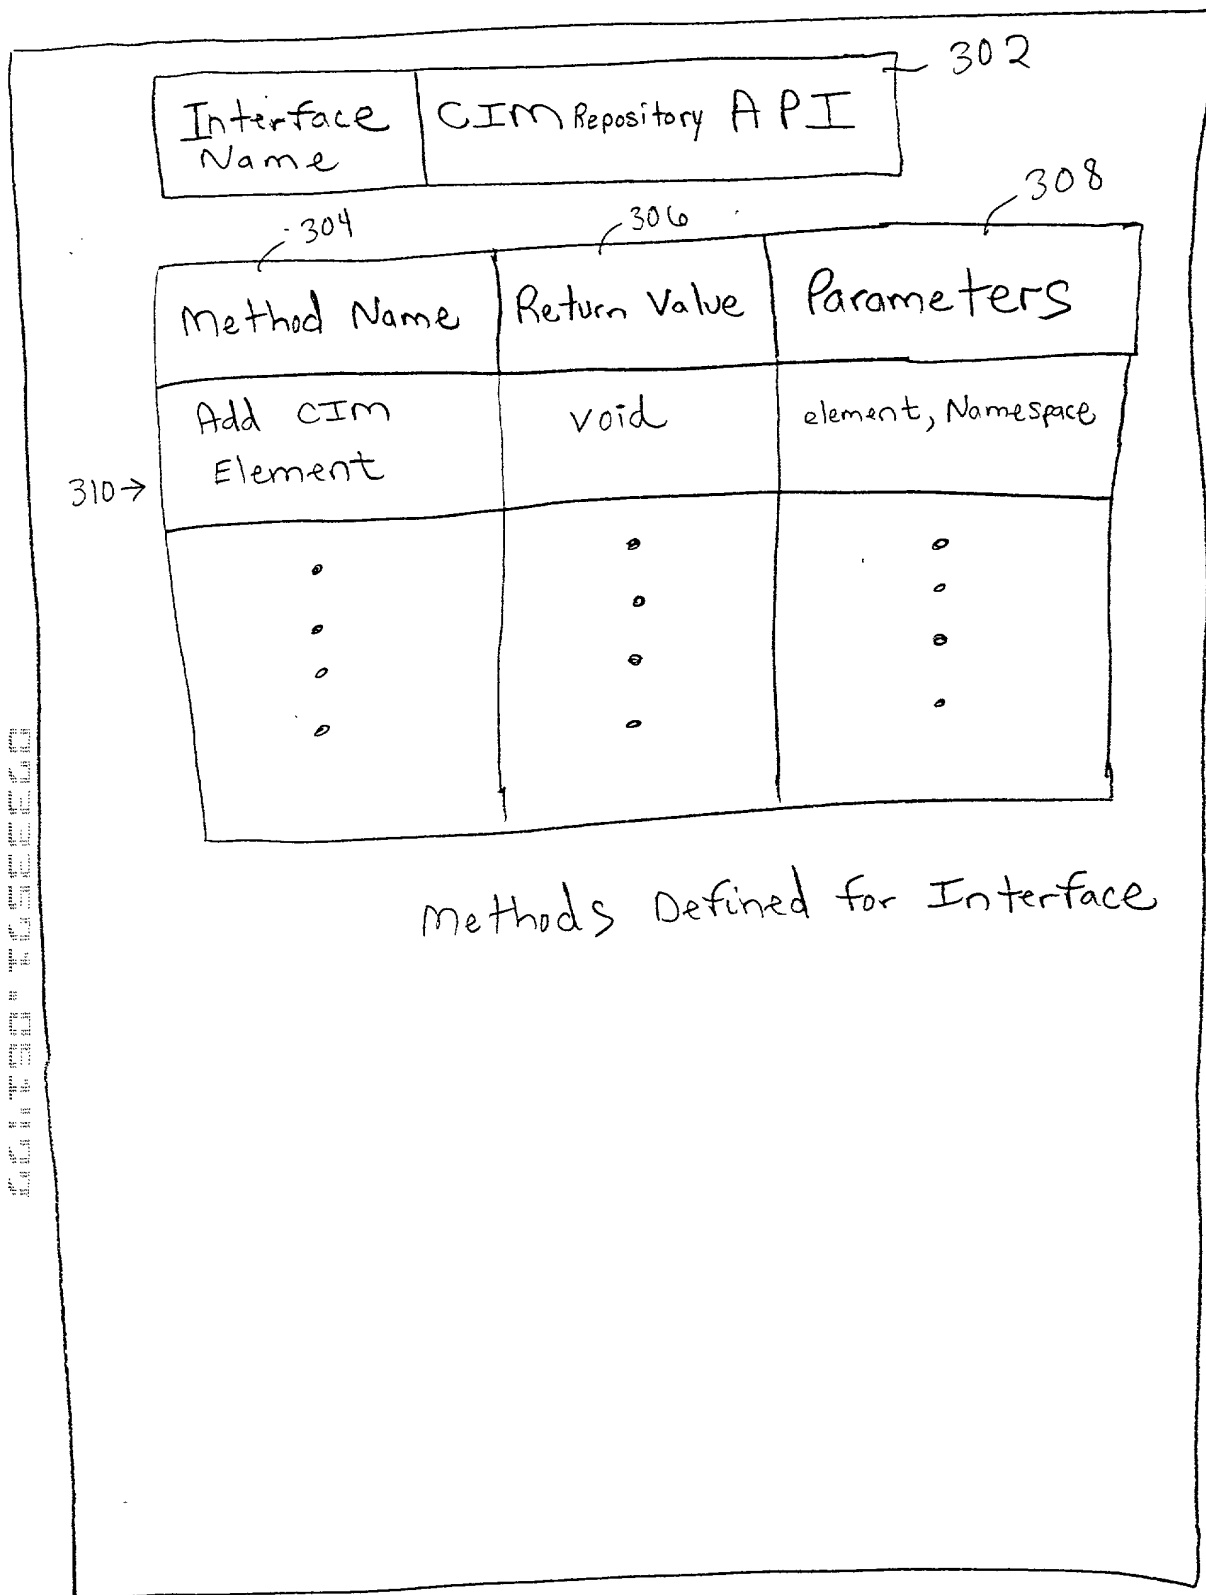 302
Interface Name | CIM Repository API
304 306 308
Method Name | Return Value | Parameters
Add CIM | void | element, Namespace
Element
310→
Methods Defined for Interface